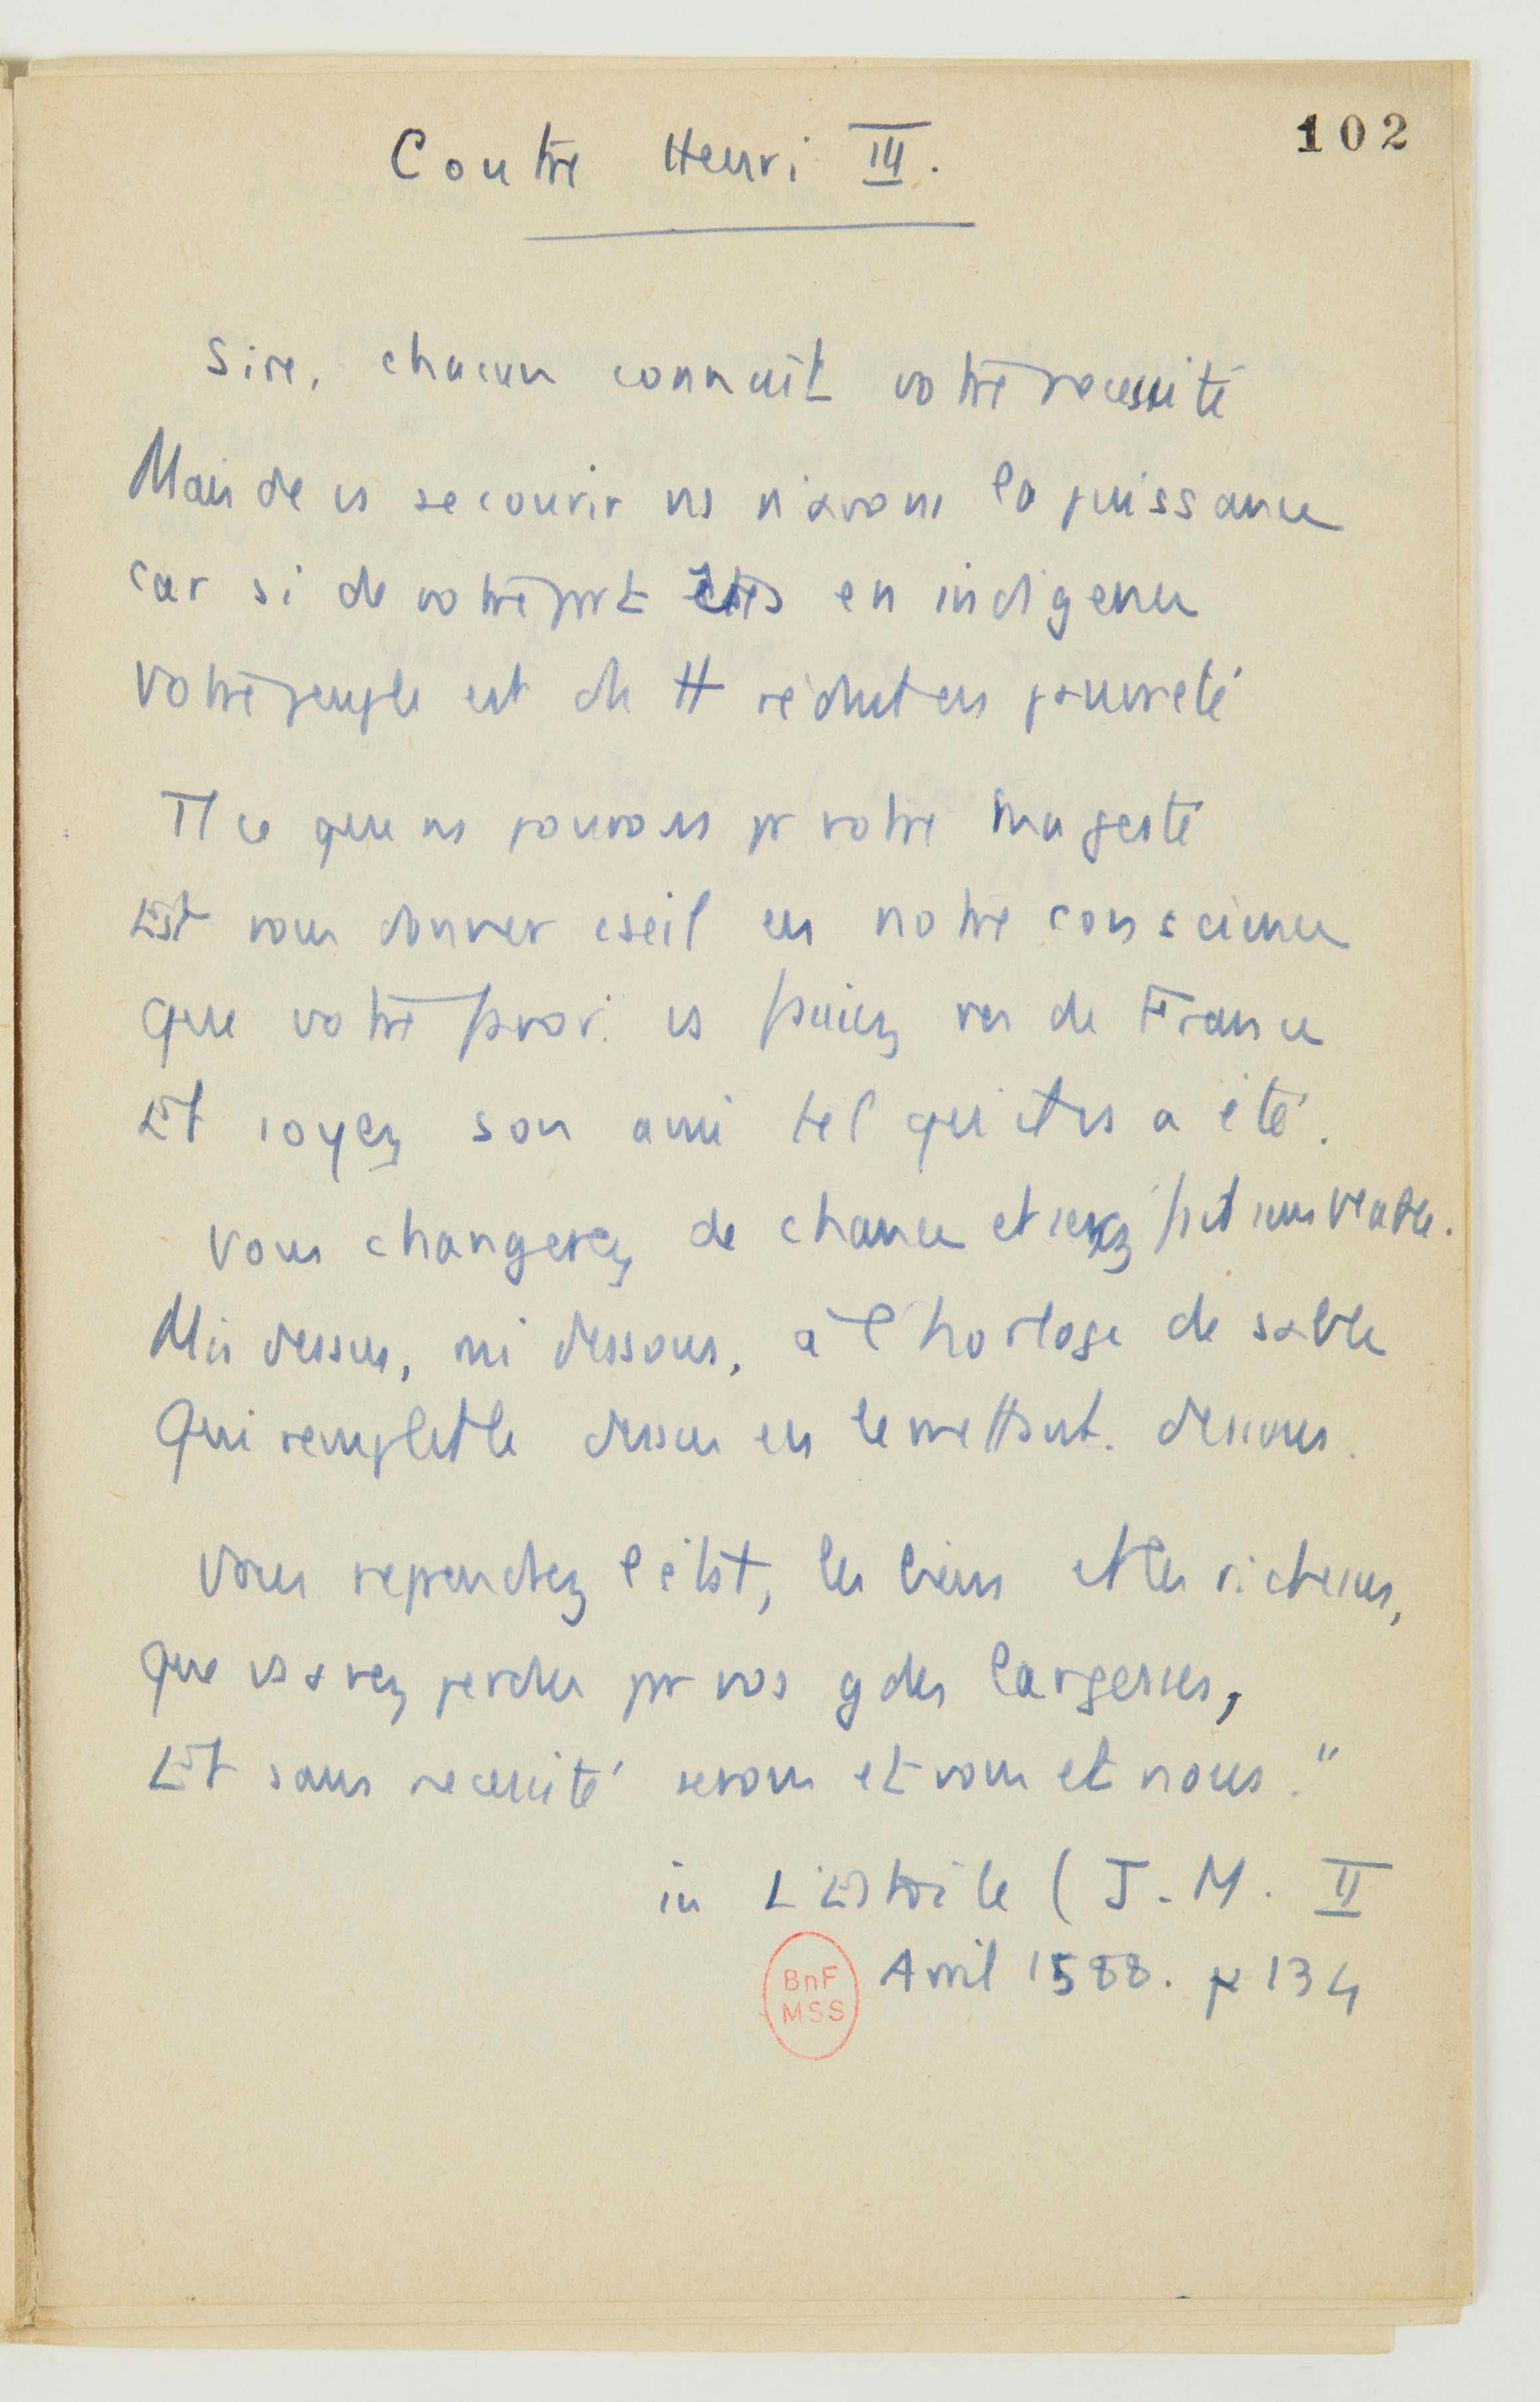 Contre Henri III.
102
Sire, chacun connaît votre necessité
Mais de vs secourir ns n'avons la puissance
car si de votre part êtes en indigence
Votre peuple est de tt réduit en pauvreté
Tt ce que ns pouvons pr votre magesté
Est vous donner cseil en notre conscience
que votre favori vs faciez roi de France
Et soyez son ami tel qu'il vs a été.
Vous changerez de chance et serez
Mis dessus, mis dessous, à l'horloge de sable
Qui remplit le dessus en le mettant dessous.
Vous reprendrez l'état, les biens et les richesses,
que vs avez perdus par vos gdes largesses,
Et sans necessité serons et vous et nous."
in L'Estoile (J-M. II
Avril 1588. p 134
BnF
MSS